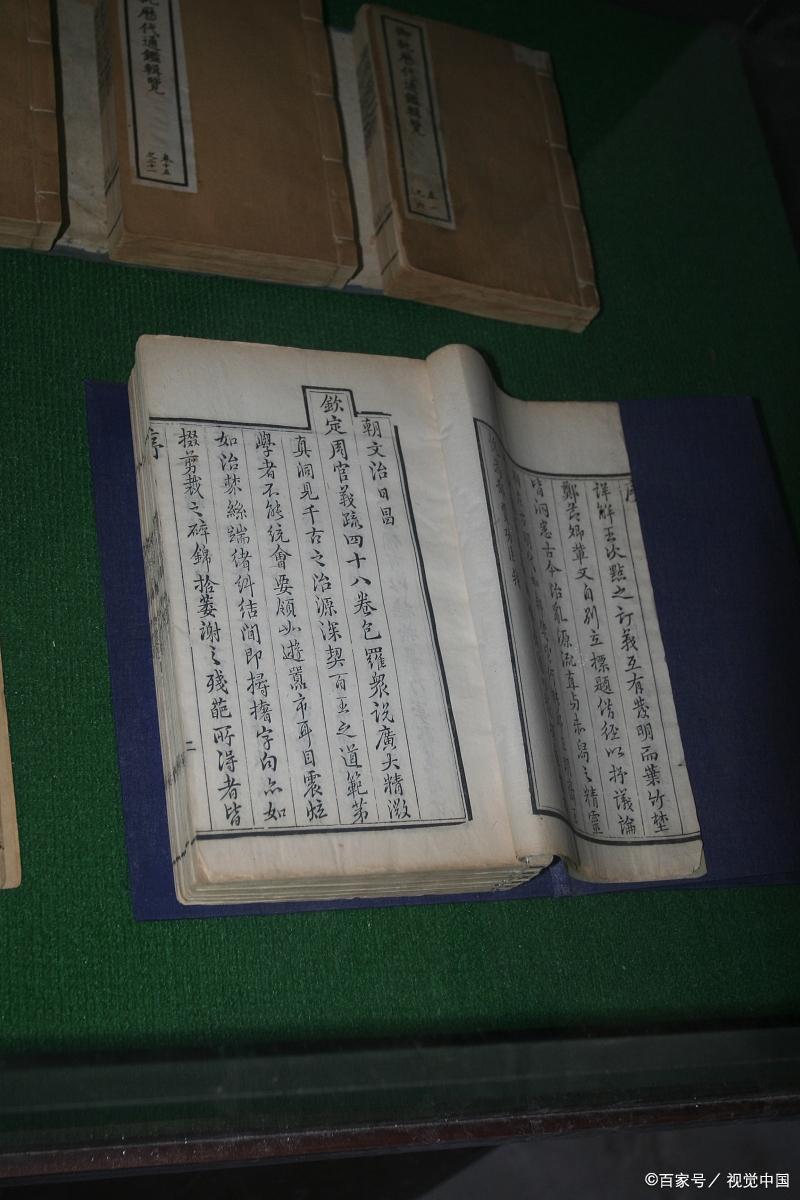 批歷代通鑑輯覽
卷十五
之二十一
御批歷代通鑑輯覽
序
詳解王次點之訂義互有發明而葉竹埜
鄭
卿輩文自別立標題借經以抒議論
皆洞悉古今治亂源流直
之精靈
朝文治日昌
欽定周官義疏四十八卷包羅衆說廣大精微
真洞見千古之治源深契百王之道範第
學者不能統會要領如遊嚣市耳目震炫
如治棼絲端緒糾結間即撏撦字句亦如
掇剪裁之碎錦拾萎謝之殘葩所得者皆
序
二
©百家号／视觉中国